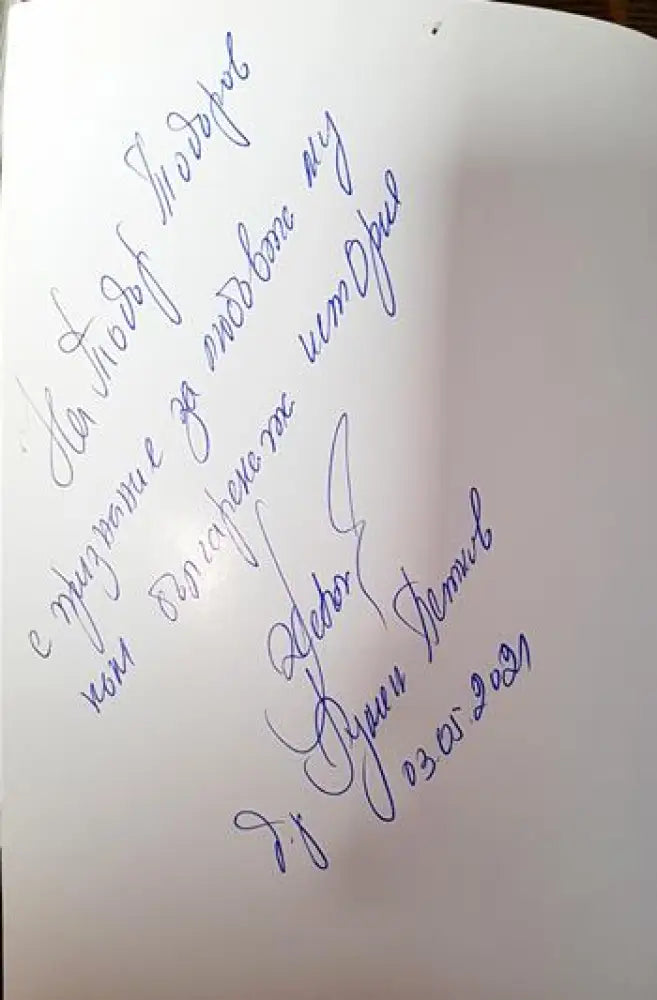 На Тодор Тодоров
с признание за любовта му
към българската история
д-р Румен Петков
03.05.2021